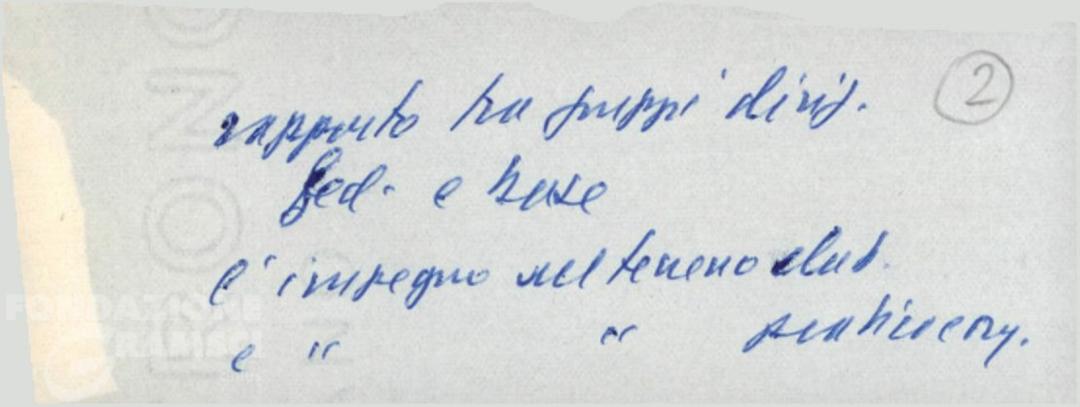 2
rapporto tra gruppi dirig.
fed. e base
l'impegno sul terreno elab.
e " "
FONDAZIONE
GRAMSCI